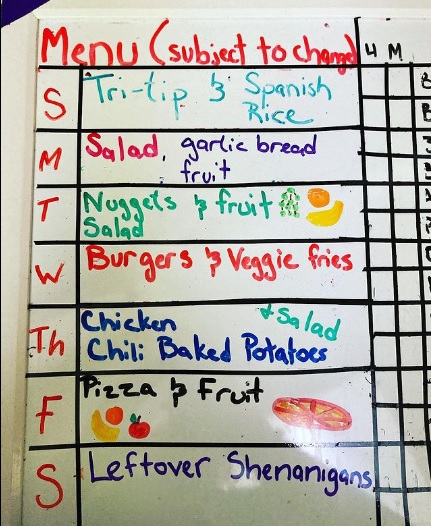 Menu (subject to change)
S Tri-tip & Spanish
Rice
M Salad, garlic bread
fruit
T Nuggets & fruit
Salad
W Burgers & Veggie fries
Th Chicken + Salad
Chili Baked Potatoes
F Pizza & Fruit
S Leftover Shenanigans
4 M